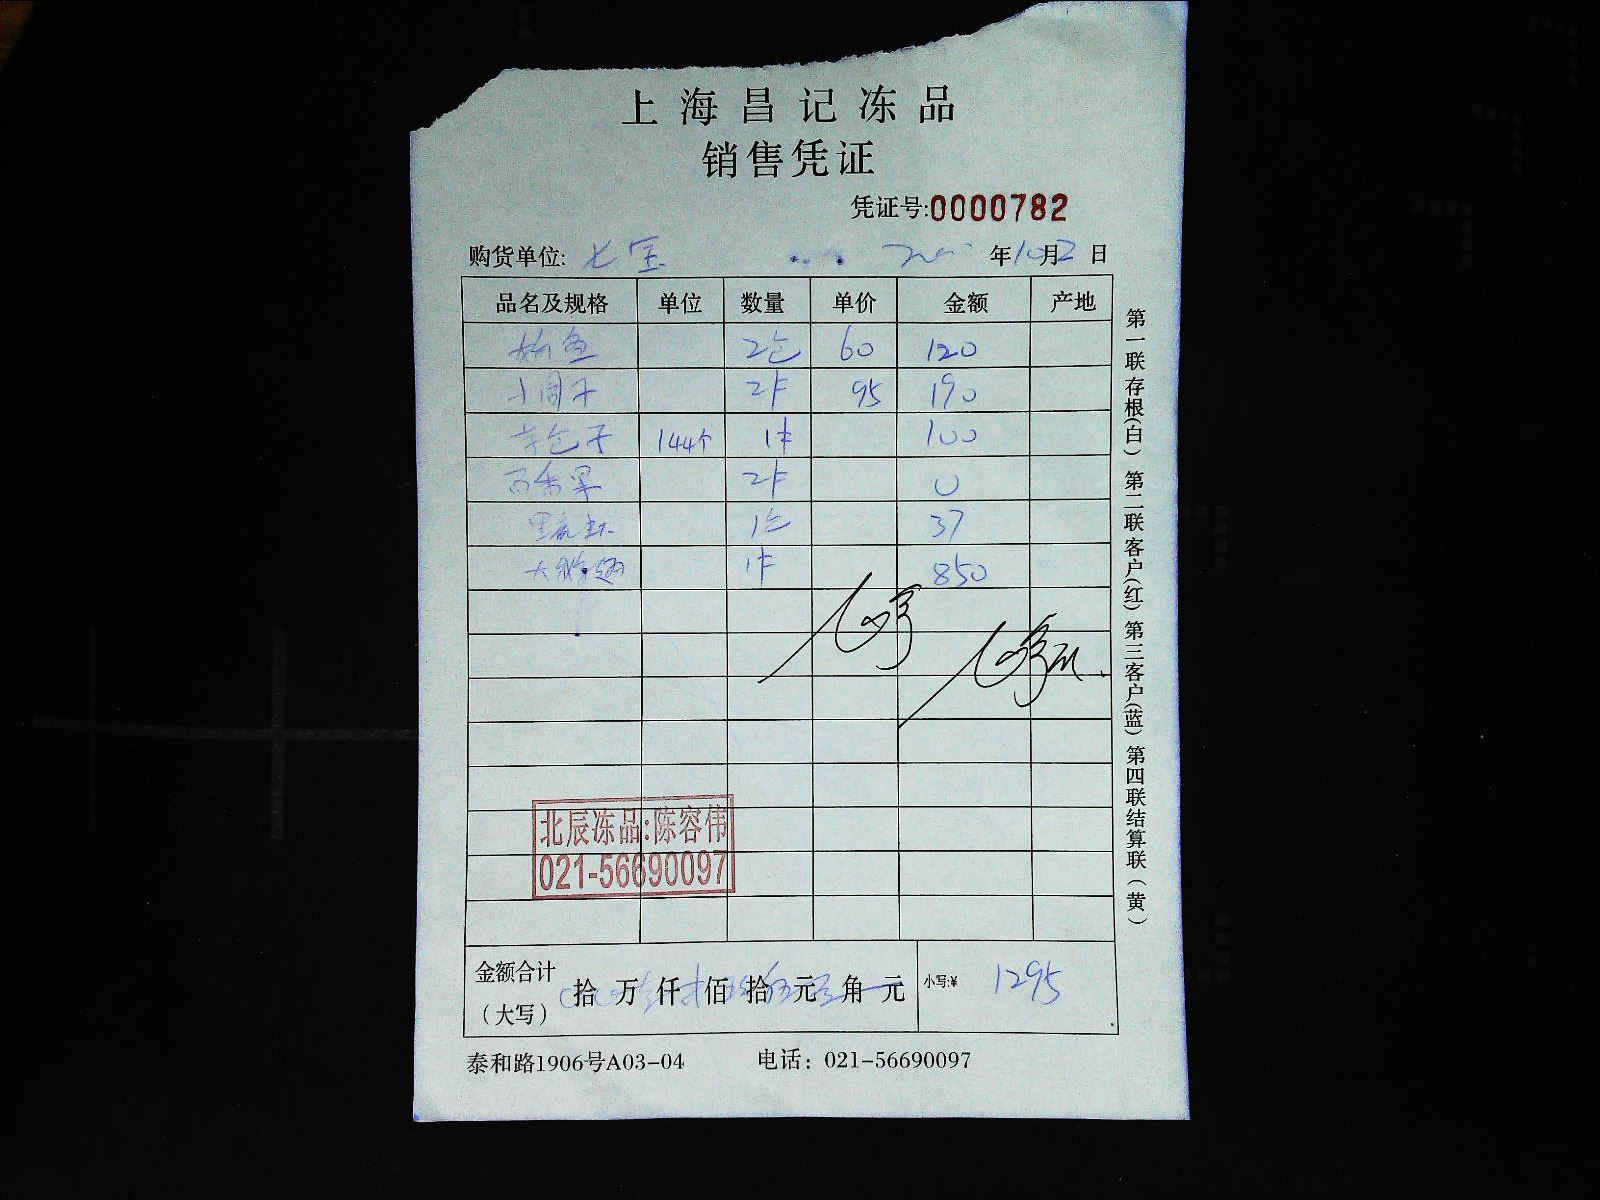 上海昌记冻品
销售凭证
凭证号:0000782
购货单位: 七宝 年10月2日
品名及规格 单位 数量 单价 金额 产地
2包 60 120
2件 95 190
144个 1件 100
百香果 2件 0
1包 37
1件 850
北辰冻品:陈容伟
021-56690097
金额合计
(大写) 拾 万 仟 佰 拾 元 角 元 小写:¥ 1295
泰和路1906号A03-04 电话: 021-56690097
第一联存根(白) 第二联客户(红) 第三客户(蓝) 第四联结算联(黄)